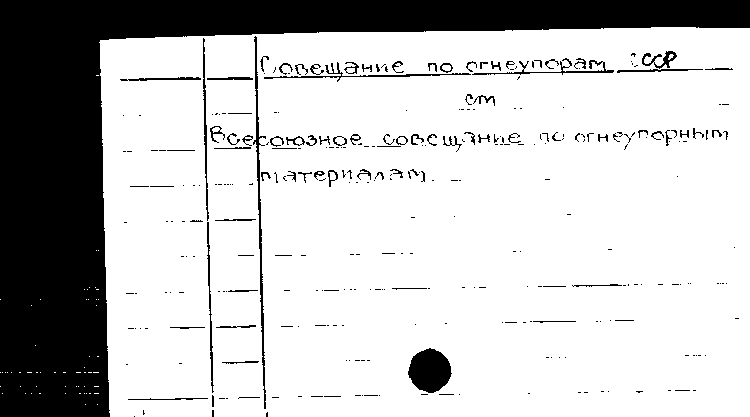 Совещание по огнеупорам СССР
см
Всесоюзное совещание по огнеупорным
материалам.